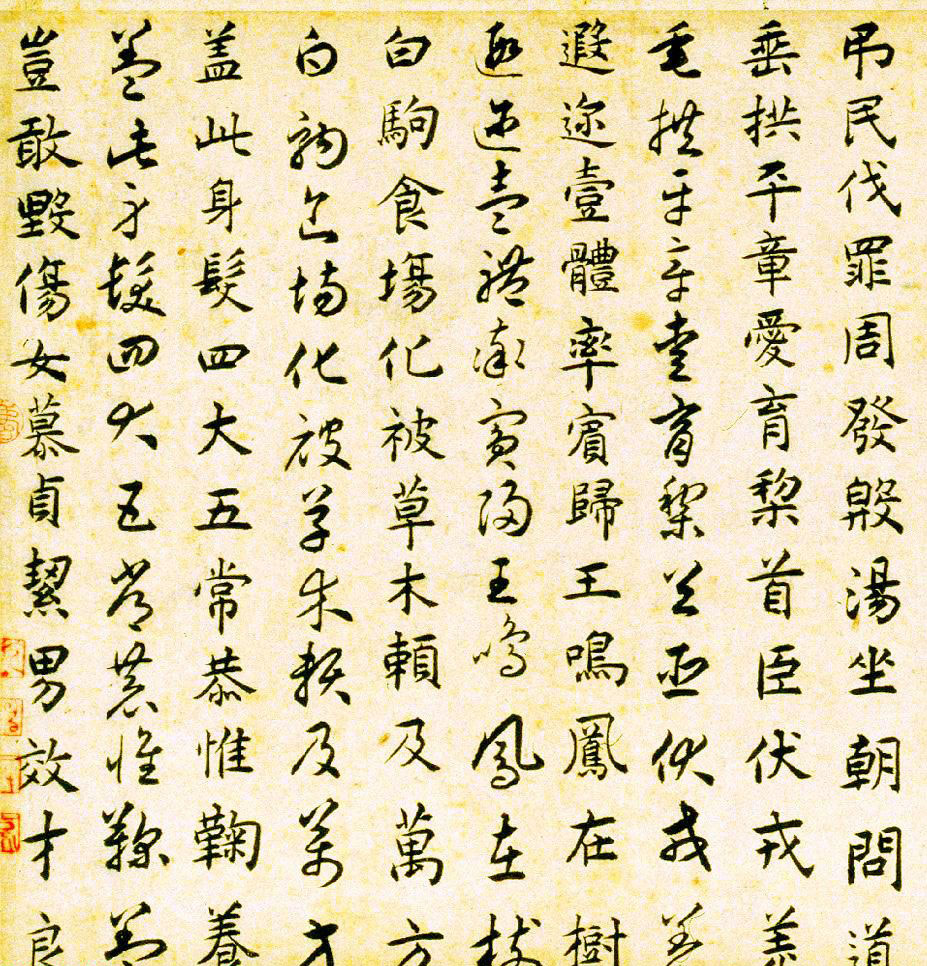 吊民伐罪周發殷湯坐朝問道
垂拱平章愛育黎首臣伏戎羌
垂拱平章愛育黎首臣伏戎羌
遐迩壹體率賓歸王鳴鳳在樹
遐迩壹體率賓歸王鳴鳳在樹
白駒食場化被草木賴及萬方
白駒食場化被草木賴及萬方
盖此身髮四大五常恭惟鞠養
盖此身髮四大五常恭惟鞠養
豈敢毀傷女慕貞絜男效才良